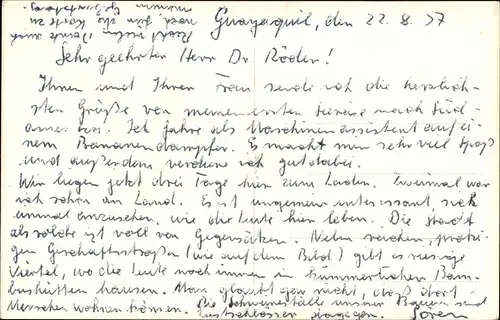 Guayaquil, den 22.8.57
Sehr geehrter Herr Dr Röder!
Ihnen und Ihrer Frau sende ich die herzlich-
sten Grüße von meiner ersten Seereise nach Süd-
amerika. Ich fahre als Maschinenassistent auf ei-
nem Bananendampfer. Es macht mir sehr viel Spaß
und außerdem verdiene ich gut dabei.
Wir liegen jetzt drei Tage hier zum Laden. Zweimal war
ich schon an Land. Es ist ungemein interessant, sich
einmal anzusehen, wie die Leute hier leben. Die Stadt
als solche ist voll von Gegensätzen. Neben reichen, protzi-
gen Geschäftsstraßen (wie auf dem Bild) gibt es riesige
Viertel, wo die Leute noch immer in kümmerlichen Bam-
bushütten hausen. Man glaubt gar nicht, daß dort
Menschen wohnen können. Die Schweineställe unserer Bauern sind
Lustschlösser dagegen. Sören